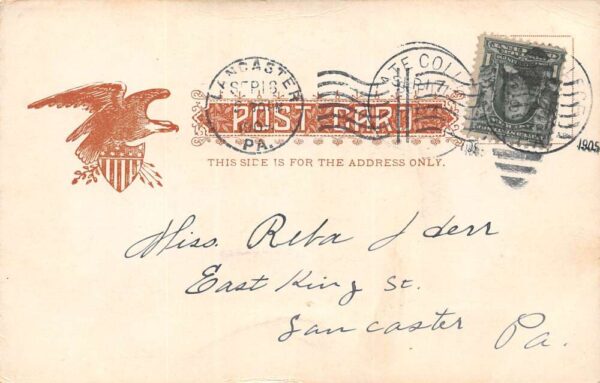 LANCASTER
SEP 18
PA.
STATE COLL
SEP 17
1905
POST CARD
THIS SIDE IS FOR THE ADDRESS ONLY.
Miss. Reba J Derr
East King St.
Lancaster Pa.